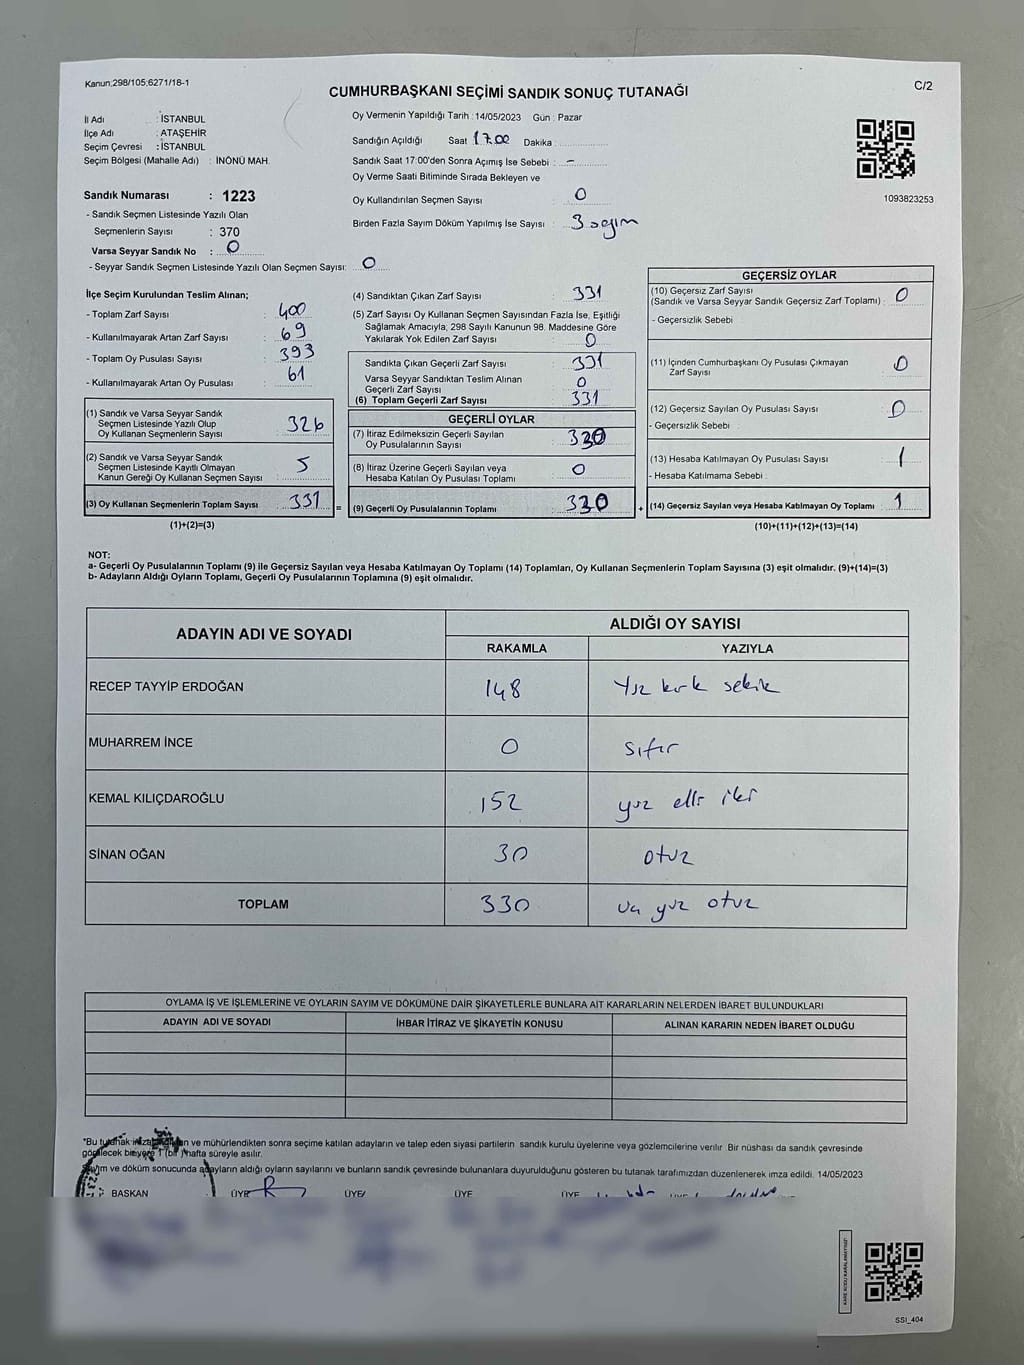 Kanun;298/105;6271/18-1
C/2
CUMHURBAŞKANI SEÇİMİ SANDIK SONUÇ TUTANAĞI
İl Adı : İSTANBUL
İlçe Adı : ATAŞEHİR
Seçim Çevresi : İSTANBUL
Seçim Bölgesi (Mahalle Adı) : İNÖNÜ MAH.
Sandık Numarası : 1223
- Sandık Seçmen Listesinde Yazılı Olan
Seçmenlerin Sayısı : 370
Varsa Seyyar Sandık No : 0
- Seyyar Sandık Seçmen Listesinde Yazılı Olan Seçmen Sayısı: 0
Oy Vermenin Yapıldığı Tarih : 14/05/2023 Gün : Pazar
Sandığın Açıldığı Saat 17.00 Dakika :
Sandık Saat 17:00'den Sonra Açımış İse Sebebi : -
Oy Verme Saati Bitiminde Sırada Bekleyen ve
Oy Kullandırılan Seçmen Sayısı : 0
Birden Fazla Sayım Döküm Yapılmış İse Sayısı : 3 sayım
1093823253
İlçe Seçim Kurulundan Teslim Alınan;
- Toplam Zarf Sayısı : 400
- Kullanılmayarak Artan Zarf Sayısı : 69
- Toplam Oy Pusulası Sayısı : 393
- Kullanılmayarak Artan Oy Pusulası : 61
(1) Sandık ve Varsa Seyyar Sandık
Seçmen Listesinde Yazılı Olup
Oy Kullanan Seçmenlerin Sayısı 326
(2) Sandık ve Varsa Seyyar Sandık
Seçmen Listesinde Kayıtlı Olmayan
Kanun Gereği Oy Kullanan Seçmen Sayısı 5
(3) Oy Kullanan Seçmenlerin Toplam Sayısı 331 =
(1)+(2)=(3)
(4) Sandıktan Çıkan Zarf Sayısı : 331
(5) Zarf Sayısı Oy Kullanan Seçmen Sayısından Fazla İse, Eşitliği
Sağlamak Amacıyla; 298 Sayılı Kanunun 98. Maddesine Göre
Yakılarak Yok Edilen Zarf Sayısı : 0
Sandıkta Çıkan Geçerli Zarf Sayısı : 331
Varsa Seyyar Sandıktan Teslim Alınan
Geçerli Zarf Sayısı : 0
(6) Toplam Geçerli Zarf Sayısı : 331
GEÇERLİ OYLAR
(7) İtiraz Edilmeksizin Geçerli Sayılan
Oy Pusulalarının Sayısı : 330
(8) İtiraz Üzerine Geçerli Sayılan veya
Hesaba Katılan Oy Pusulası Toplamı : 0
(9) Geçerli Oy Pusulalarının Toplamı : 330 +
GEÇERSİZ OYLAR
(10) Geçersiz Zarf Sayısı
(Sandık ve Varsa Seyyar Sandık Geçersiz Zarf Toplamı) : 0
- Geçersizlik Sebebi :
(11) İçinden Cumhurbaşkanı Oy Pusulası Çıkmayan
Zarf Sayısı : 0
(12) Geçersiz Sayılan Oy Pusulası Sayısı : 0
- Geçersizlik Sebebi :
(13) Hesaba Katılmayan Oy Pusulası Sayısı : 1
- Hesaba Katılmama Sebebi :
(14) Geçersiz Sayılan veya Hesaba Katılmayan Oy Toplamı : 1
(10)+(11)+(12)+(13)=(14)
NOT:
a- Geçerli Oy Pusulalarının Toplamı (9) ile Geçersiz Sayılan veya Hesaba Katılmayan Oy Toplamı (14) Toplamları, Oy Kullanan Seçmenlerin Toplam Sayısına (3) eşit olmalıdır. (9)+(14)=(3)
b- Adayların Aldığı Oyların Toplamı, Geçerli Oy Pusulalarının Toplamına (9) eşit olmalıdır.
ADAYIN ADI VE SOYADI
ALDIĞI OY SAYISI
RAKAMLA YAZIYLA
RECEP TAYYİP ERDOĞAN 148 Yüz kırk sekiz
MUHARREM İNCE 0 sıfır
KEMAL KILIÇDAROĞLU 152 yüz elli iki
SİNAN OĞAN 30 otuz
TOPLAM 330 üç yüz otuz
OYLAMA İŞ VE İŞLEMLERİNE VE OYLARIN SAYIM VE DÖKÜMÜNE DAİR ŞİKAYETLERLE BUNLARA AİT KARARLARIN NELERDEN İBARET BULUNDUKLARI
ADAYIN ADI VE SOYADI İHBAR İTİRAZ VE ŞİKAYETİN KONUSU ALINAN KARARIN NEDEN İBARET OLDUĞU
*Bu tutanak ve mühürlendikten sonra seçime katılan adayların ve talep eden siyasi partilerin sandık kurulu üyelerine veya gözlemcilerine verilir. Bir nüshası da sandık çevresinde
görülecek bir yere 1 (bir) hafta süreyle asılır.
Sayım ve döküm sonucunda adayların aldığı oyların sayılarını ve bunların sandık çevresinde bulunanlara duyurulduğunu gösteren bu tutanak tarafımızdan düzenlenerek imza edildi. 14/05/2023
BAŞKAN ÜYE ÜYE ÜYE ÜYE
KARE KODU KARALAMAYINIZ!
SSI_404